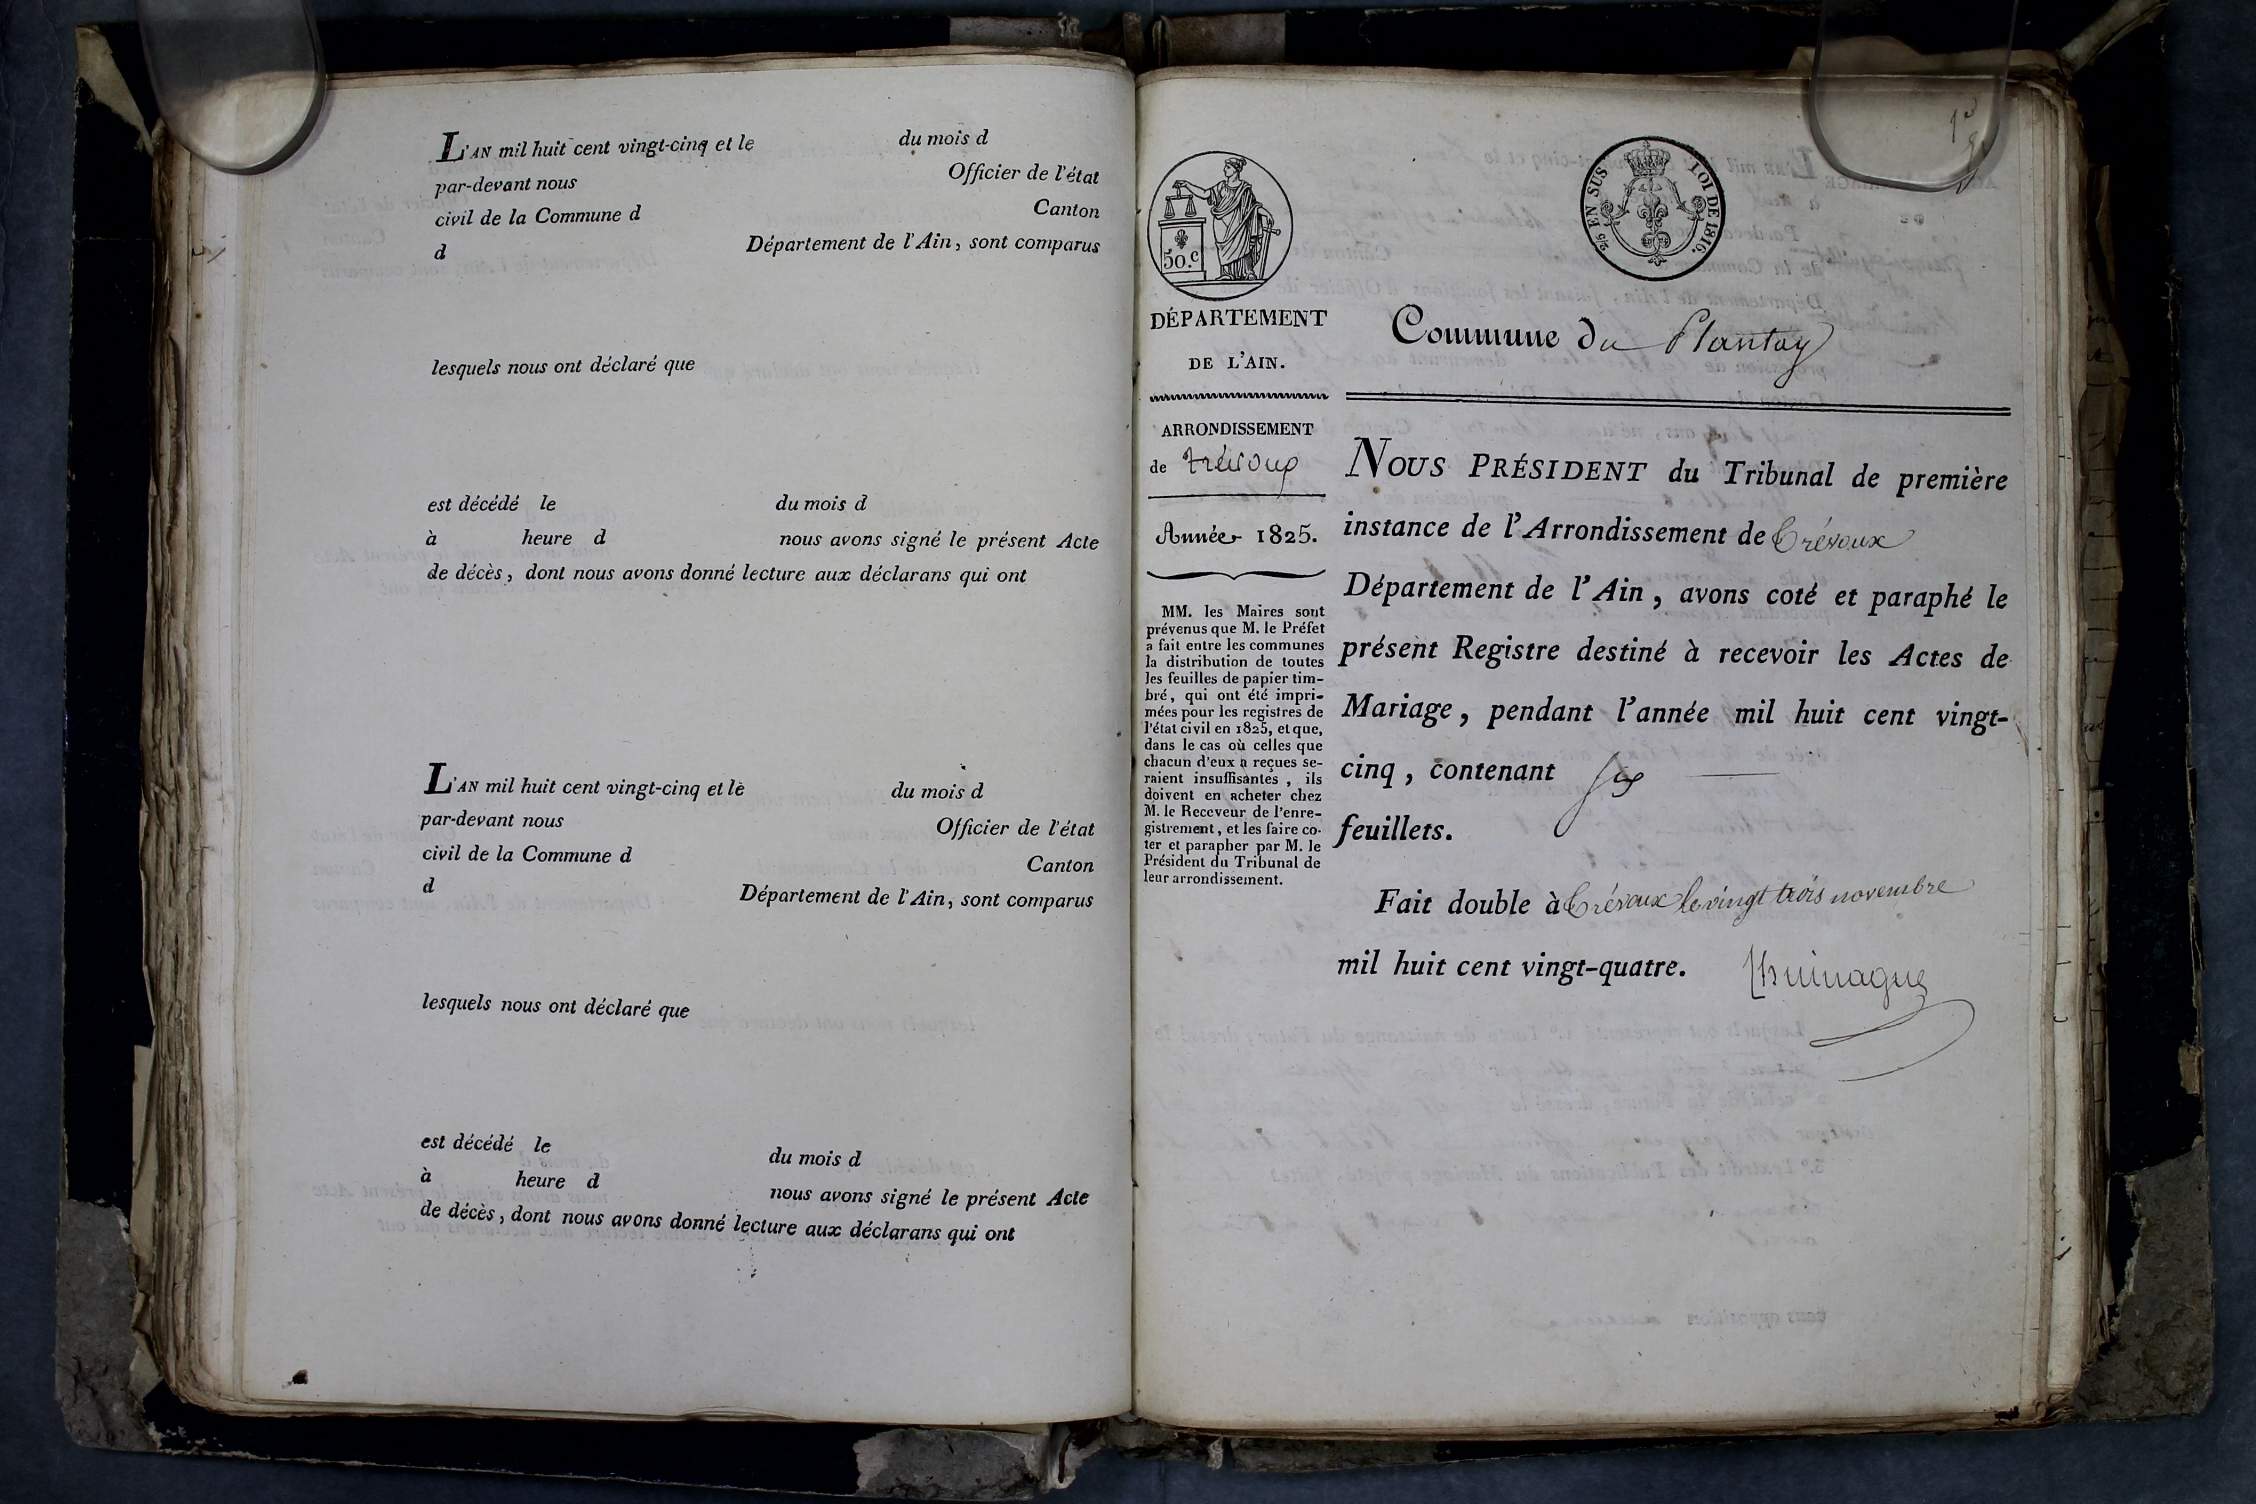 L'AN mil huit cent vingt-cinq et le du mois d
par-devant nous Officier de l'état
civil de la Commune d Canton
d Département de l'Ain, sont comparus
lesquels nous ont déclaré que
est décédé le du mois d
à heure d nous avons signé le présent Acte
de décès, dont nous avons donné lecture aux déclarans qui ont
L'AN mil huit cent vingt-cinq et le du mois d
par-devant nous Officier de l'état
civil de la Commune d Canton
d Département de l'Ain, sont comparus
lesquels nous ont déclaré que
est décédé le du mois d
à heure d nous avons signé le présent Acte
de décès, dont nous avons donné lecture aux déclarans qui ont
50.c
DÉPARTEMENT
DE L'AIN.
ARRONDISSEMENT
de trévoux
Année 1825.
MM. les Maires sont
prévenus que M. le Préfet
a fait entre les communes
la distribution de toutes
les feuilles de papier tim-
bré, qui ont été impri-
mées pour les registres de
l'état civil en 1825, et que,
dans le cas où celles que
chacun d'eux a reçues se-
raient insuffisantes, ils
doivent en acheter chez
M. le Receveur de l'enre-
gistrement, et les faire co-
ter et parapher par M. le
Président du Tribunal de
leur arrondissement.
EN SUS LOI DE 1816.
Commune du Plantay
NOUS PRÉSIDENT du Tribunal de première
instance de l'Arrondissement de Trévoux
Département de l'Ain, avons coté et paraphé le
présent Registre destiné à recevoir les Actes de
Mariage, pendant l'année mil huit cent vingt-
cinq, contenant six
feuillets.
Fait double à Trévoux le vingt trois novembre
mil huit cent vingt-quatre.